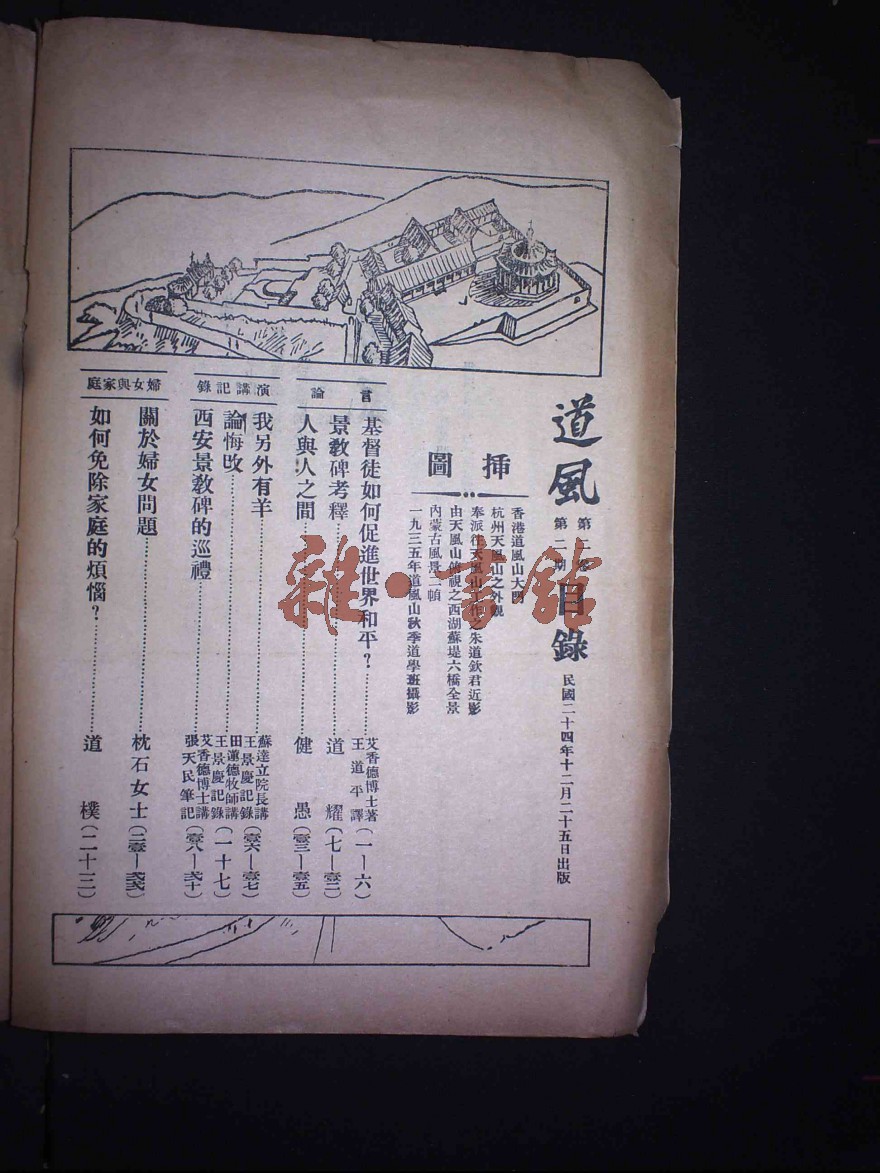 道風
第二期
目錄
民國二十四年十二月二十五日出版
插圖
香港道風山大門
杭州天風山之外觀
奉派往天風山工作之朱道欽君近影
由天風山俯視之西湖蘇堤六橋全景
內蒙古風景二幀
一九三五年道風山秋季道學班攝影
言論
基督徒如何促進世界和平?……艾香德博士著 王道平譯(一—六)
景教碑考釋……道耀(七—壹二)
人與人之間……健愚(壹三—壹五)
演講記錄
我另外有羊……蘇達立院長講 王景慶記錄(壹六—壹七)
論悔改……田蓮德牧師講 王景慶記錄(一十七)
西安景教碑的巡禮……艾香德博士講 張天民筆記(壹八—弍十)
婦女與家庭
關於婦女問題……枕石女士(二壹—弍弍)
如何免除家庭的煩惱?……道樸(二十三)
雜·書館